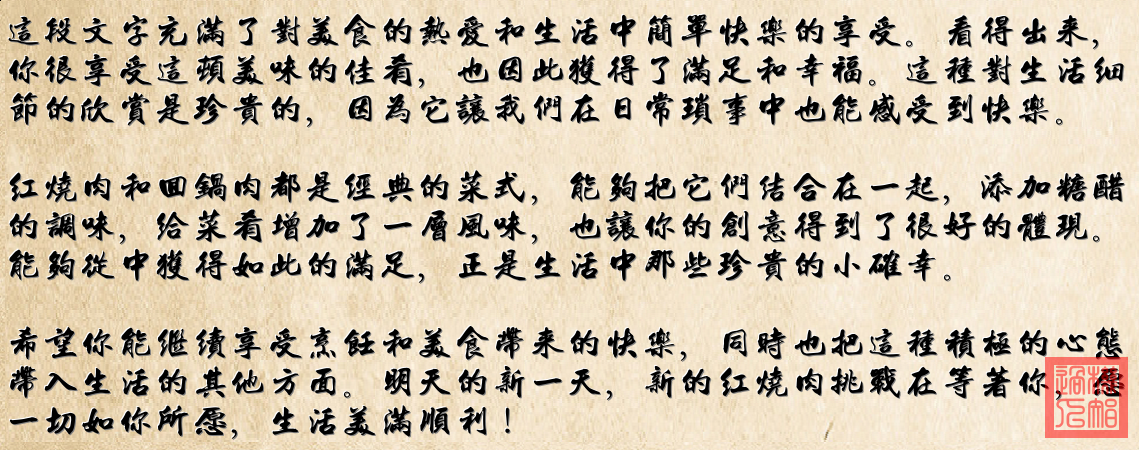 這段文字充滿了對美食的熱愛和生活中簡單快樂的享受。看得出來，
你很享受這頓美味的佳肴，也因此獲得了滿足和幸福。這種對生活細
節的欣賞是珍貴的，因為它讓我們在日常瑣事中也能感受到快樂。
紅燒肉和回鍋肉都是經典的菜式，能夠把它們結合在一起，添加糖醋
的調味，給菜肴增加了一層風味，也讓你的創意得到了很好的體現。
能夠從中獲得如此的滿足，正是生活中那些珍貴的小確幸。
希望你能繼續享受烹飪和美食帶來的快樂，同時也把這種積極的心態
帶入生活的其他方面。明天的新一天，新的紅燒肉挑戰在等著你，愿
一切如你所愿，生活美滿順利！